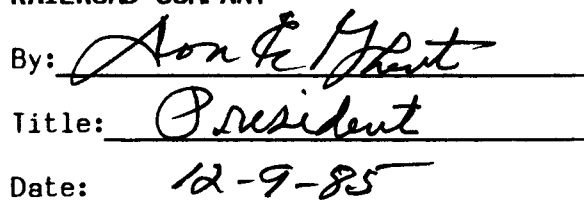 RAILROAD COMPANY
By:
Title: President
Date: 12-9-85